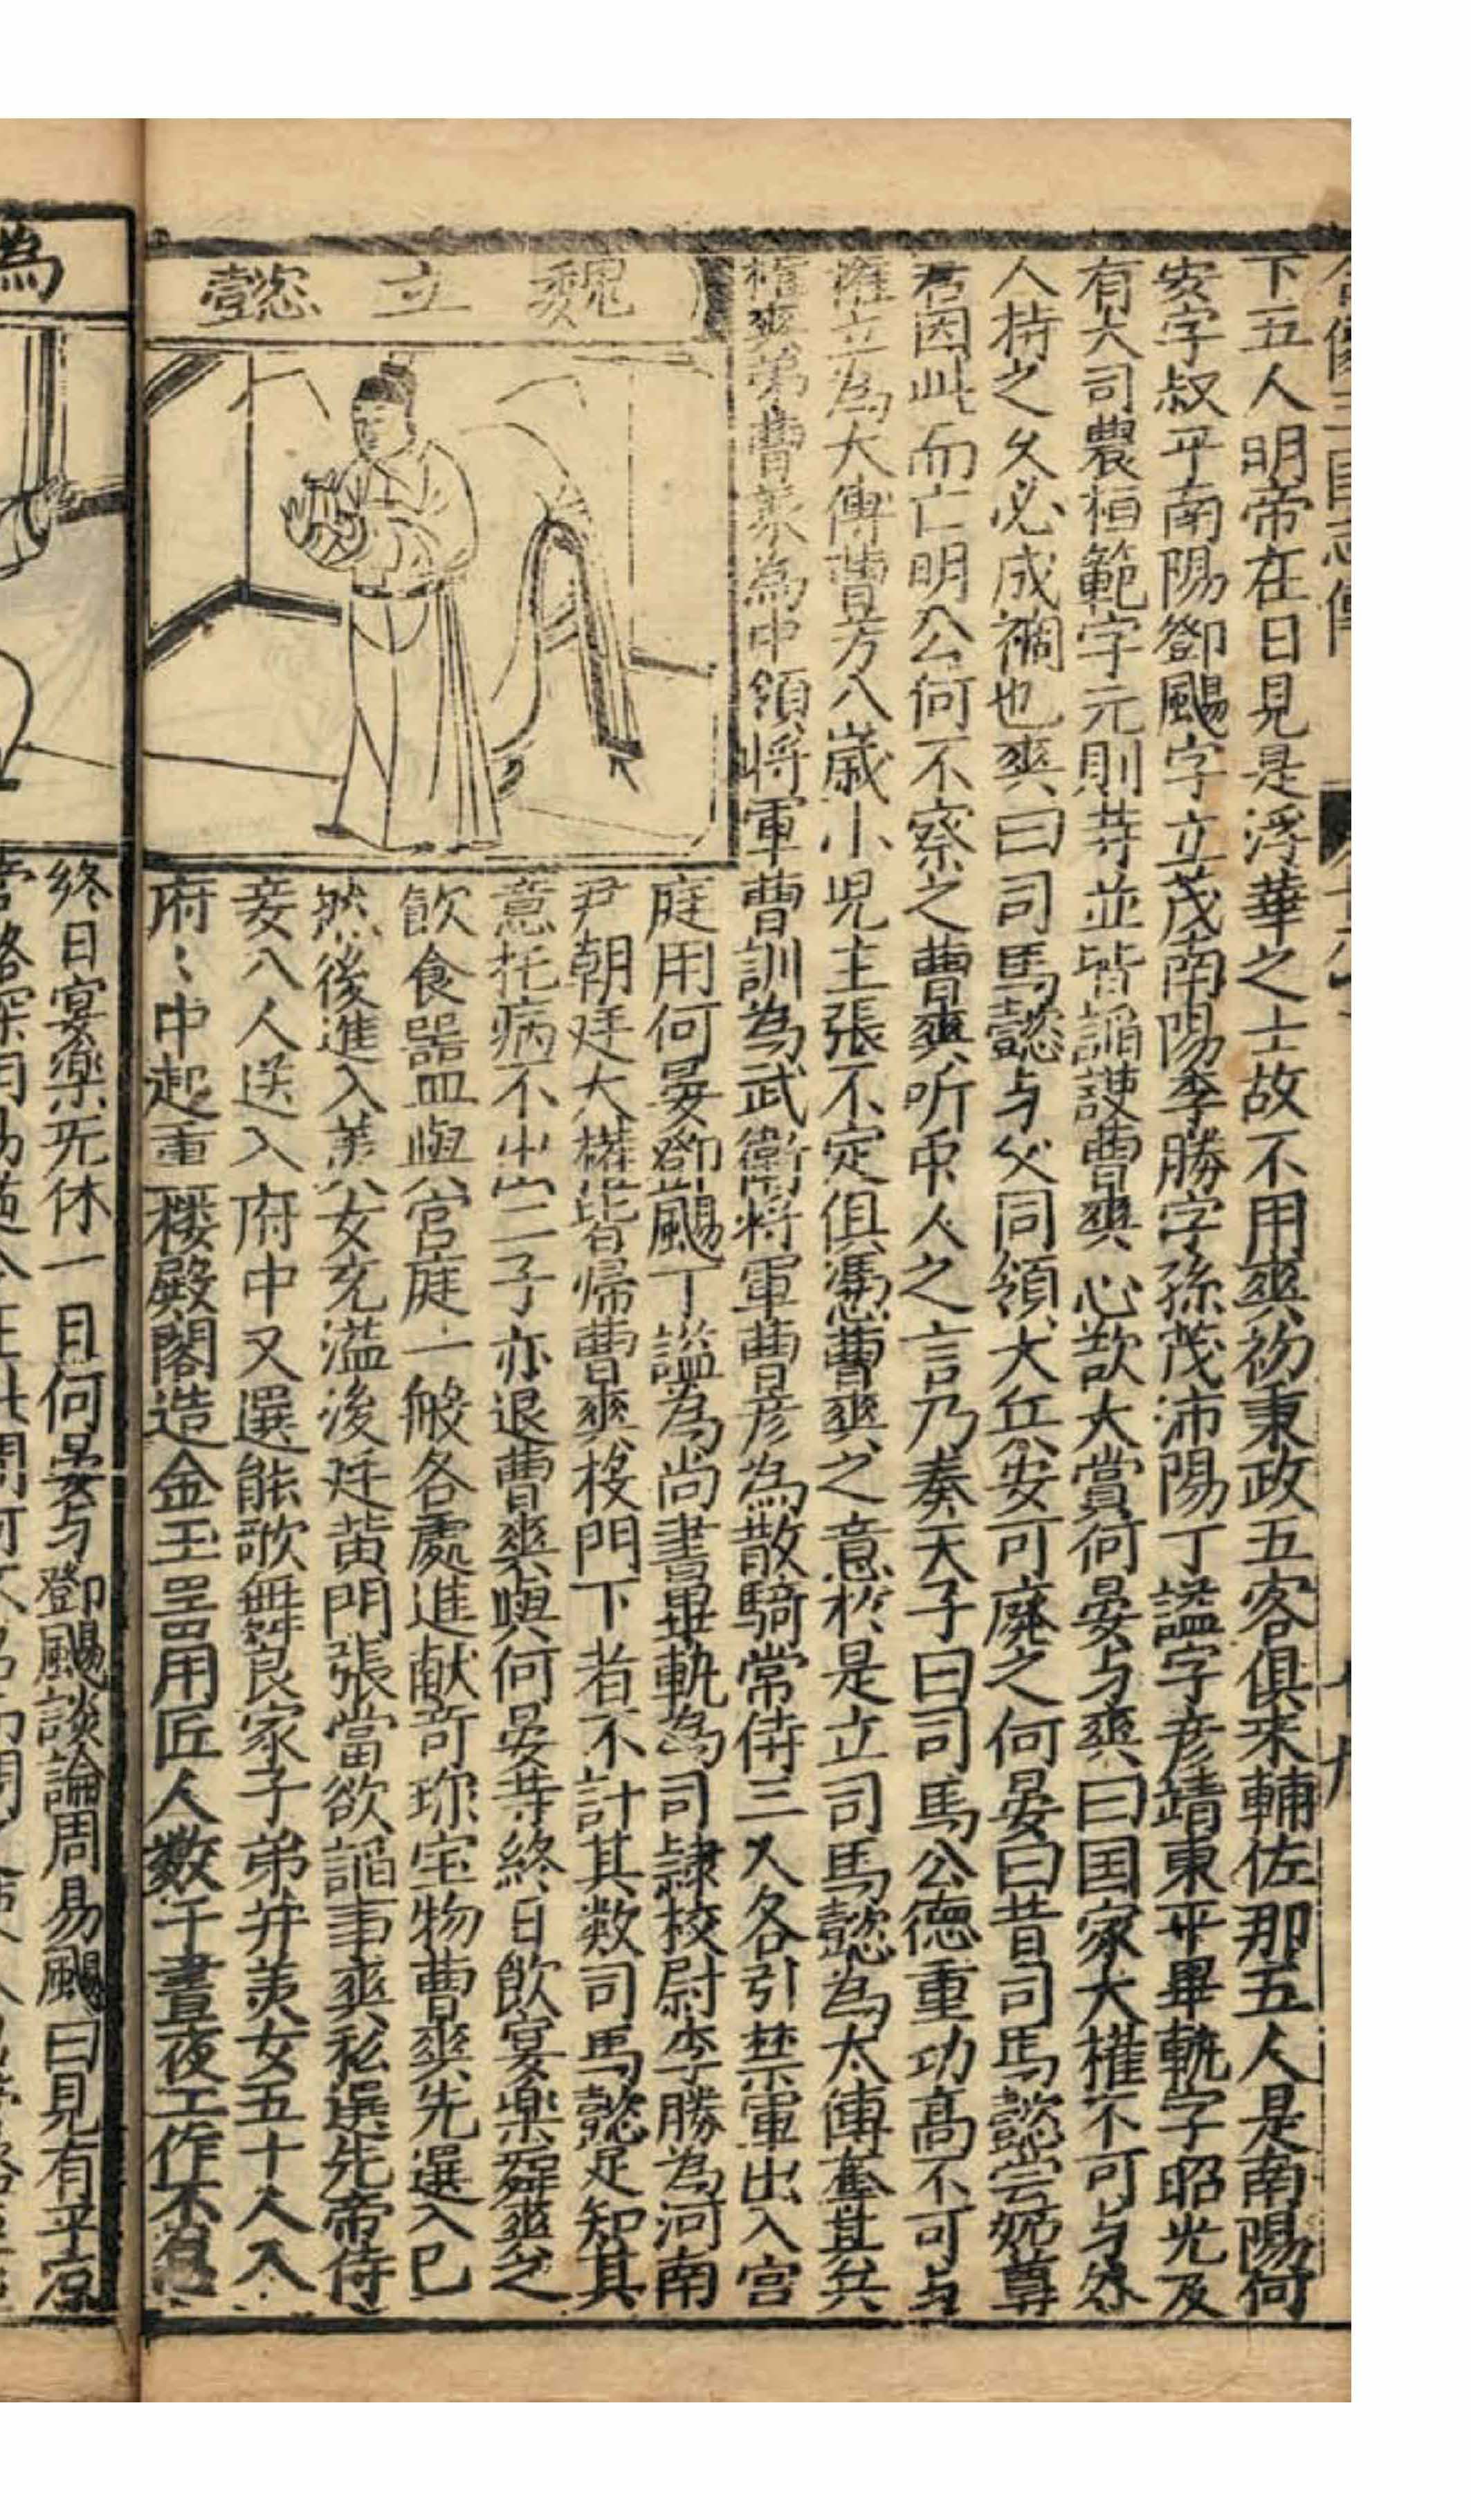 下五人明帝在日見是浮華之士故不用爽初秉政五客俱来輔佐那五人是南陽何
安字叔平南陽鄧颺字立茂南陽李勝字孫茂沛陽丁謐字彦靖東平畢軌字昭光及
有大司農桓範字元則䓁並皆謟諛曹爽心歡大賞何晏与爽曰国家大權不可与外
人持之久必成禍也爽曰司馬懿与父同領大兵安可廢之何晏曰昔司馬懿尝姤尊
君因此而亡明公何不察之曹爽听𠂥人之言乃奏天子曰司馬公德重功高不可与
權立為大傅曹芳八歳小児主張不定俱馮曹爽之意於是立司馬懿為太傅奪其兵
權爽弟曹羲為中領将軍曹訓為武衛将軍曹彦為散騎常侍三人各引禁軍出入宫
魏立懿
庭用何晏鄧颺丁謐為尚書畢軌為司隸校尉李勝為河南
尹朝廷大權皆帰曹爽投門下者不計其数司馬懿足知其
意托病不出二子亦退曹爽與何晏䓁終日飲宴楽舜爽之
飲食噐皿與官庭一般各處進献竒珎宝物曹爽先選入己
然後進入羙女充溢後廷黄門張當欲謟事爽私選先帝侍
妾八人送入府中又選能歌舞良家子弟并羙女五十人入
府〻中起重楼殿閣造金玉噐用匠人数千晝夜工作不
終日宴楽无休一日何晏与鄧颺談論周易颺曰見有平原